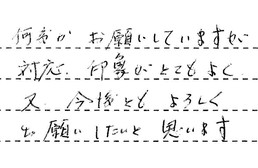 何度か お願いしていますが
対応、印象がとてもよく
又、今後とも よろしく
お願いしたいと 思います